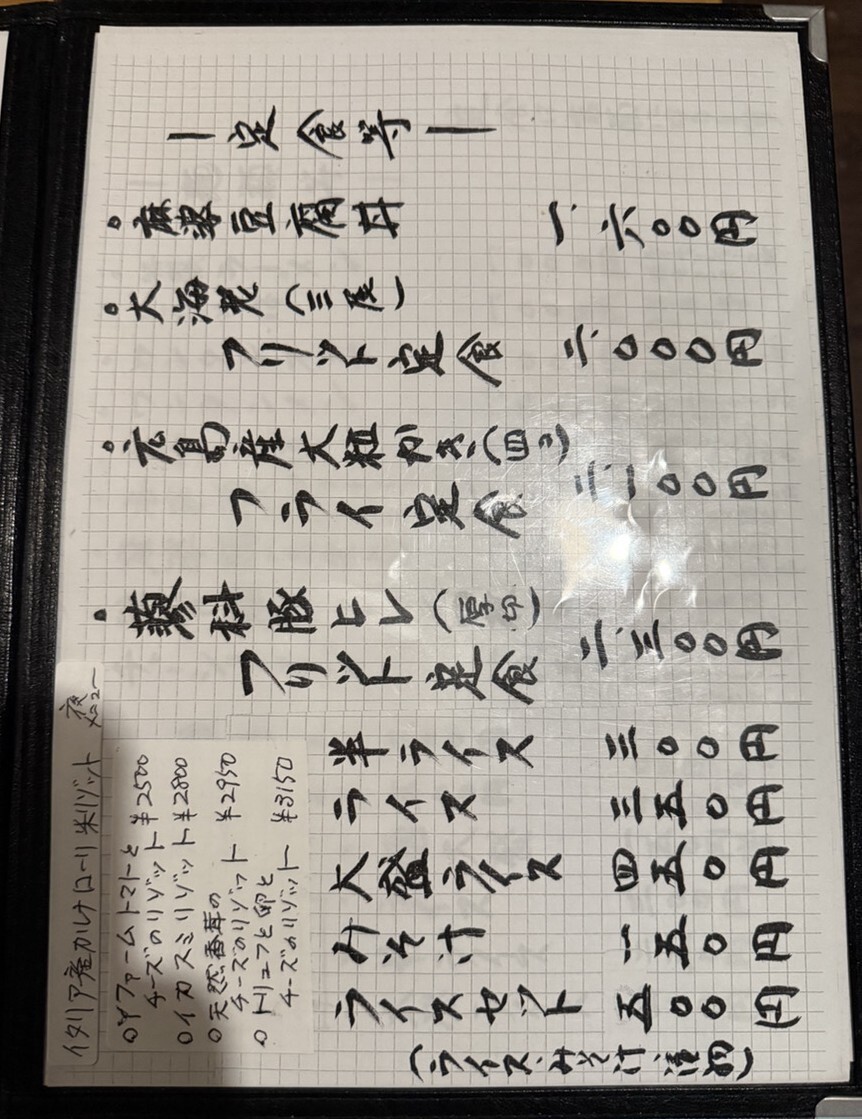 ー定食等ー
・麻婆豆腐丼 一、六〇〇円
・大海老（三尾）
フリット定食 二、〇〇〇円
・広島産大粒かき（四コ）
フライ定食 二、一〇〇円
・蓼科豚ヒレ（厚切）
フリット定食 二、三〇〇円
半ライス 三〇〇円
ライス 三五〇円
大盛ライス 四五〇円
みそ汁 一五〇円
ライスセット 五〇〇円
（ライス、みそ汁、漬物）
イタリア産カルナローリ米リゾット 夜メニュー
○Yファームトマトと
チーズのリゾット ¥2500
○イカスミリゾット ¥2800
○天然香茸の
チーズのリゾット ¥2950
○トリュフと卵と
チーズのリゾット ¥3150